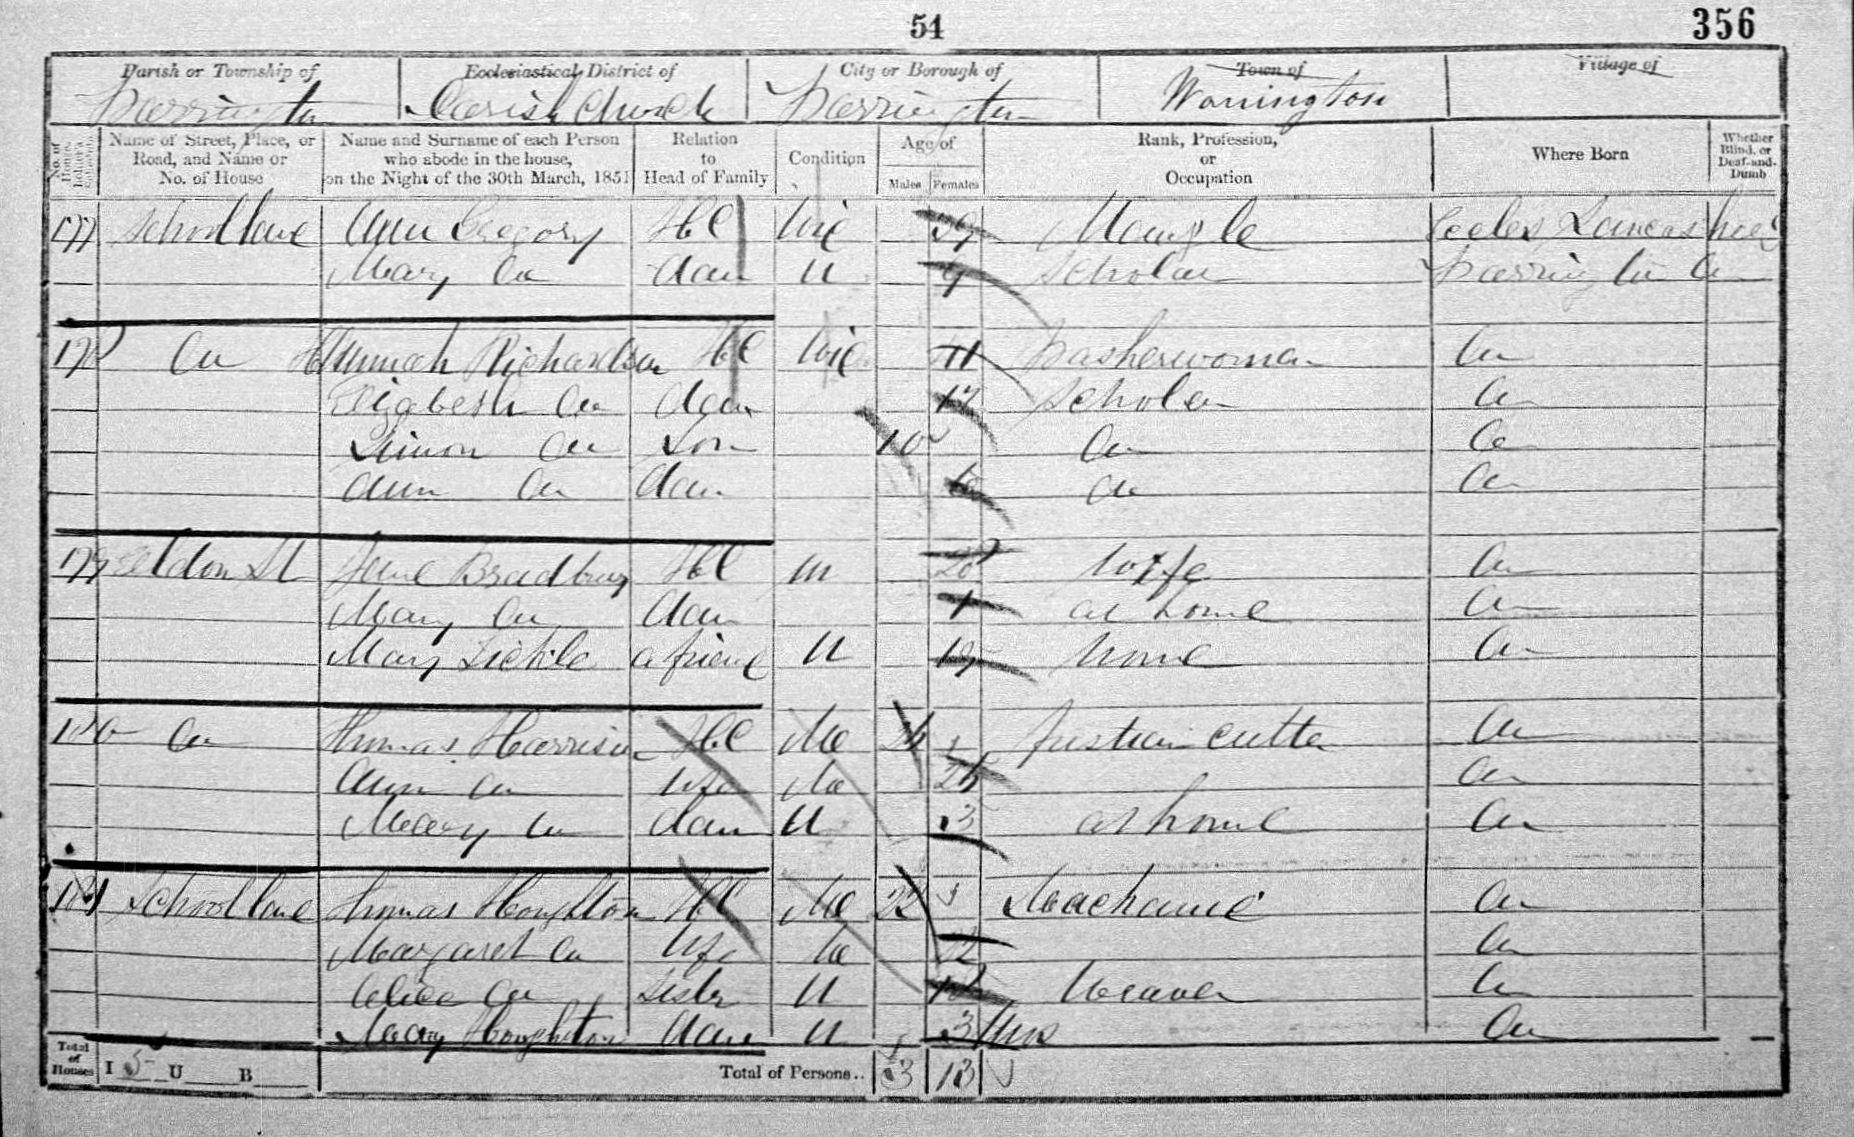 54
356
Parish or Township of
Warrington
Ecclesiastical District of
Parish Church
City or Borough of
Warrington
Town of
Warrington
Village of
No. of House-holder's Schedule
Name of Street, Place, or Road, and Name or No. of House
Name and Surname of each Person who abode in the house, on the Night of the 30th March, 1851
Relation to Head of Family
Condition
Age of
Males
Females
Rank, Profession, or Occupation
Where Born
Whether Blind, or Deaf-and-Dumb
177 School lane Ann Gregory Hd Wid 39 Mangle Eccles Lancashire
Mary Do dau U 9 Scholar Warrington Do
178 Do Hannah Richardson Hd Wid 41 Washerwoman Do
Elizabeth Do dau 12 Scholar Do
Simon Do Son 10 Do Do
Ann Do dau Do Do
179 Eldon St Jane Bradbury Hd m 20 Wife Do
Mary Do dau 1 at home Do
Mary a friend U 19 home Do
180 Do Thomas Harrison Hd Ma Fustian cutter Do
Ann Do Wife Ma Do
Mary Do dau U 3 at home Do
181 School lane Thomas Houghton Hd Ma 22 Mechanic Do
Margaret Do Wife Ma 22 Do
Alice Do Sister U Weaver Do
Mary Houghton dau U 3 Mos Do
Total of Houses I 5 U B
Total of Persons.. 3 13